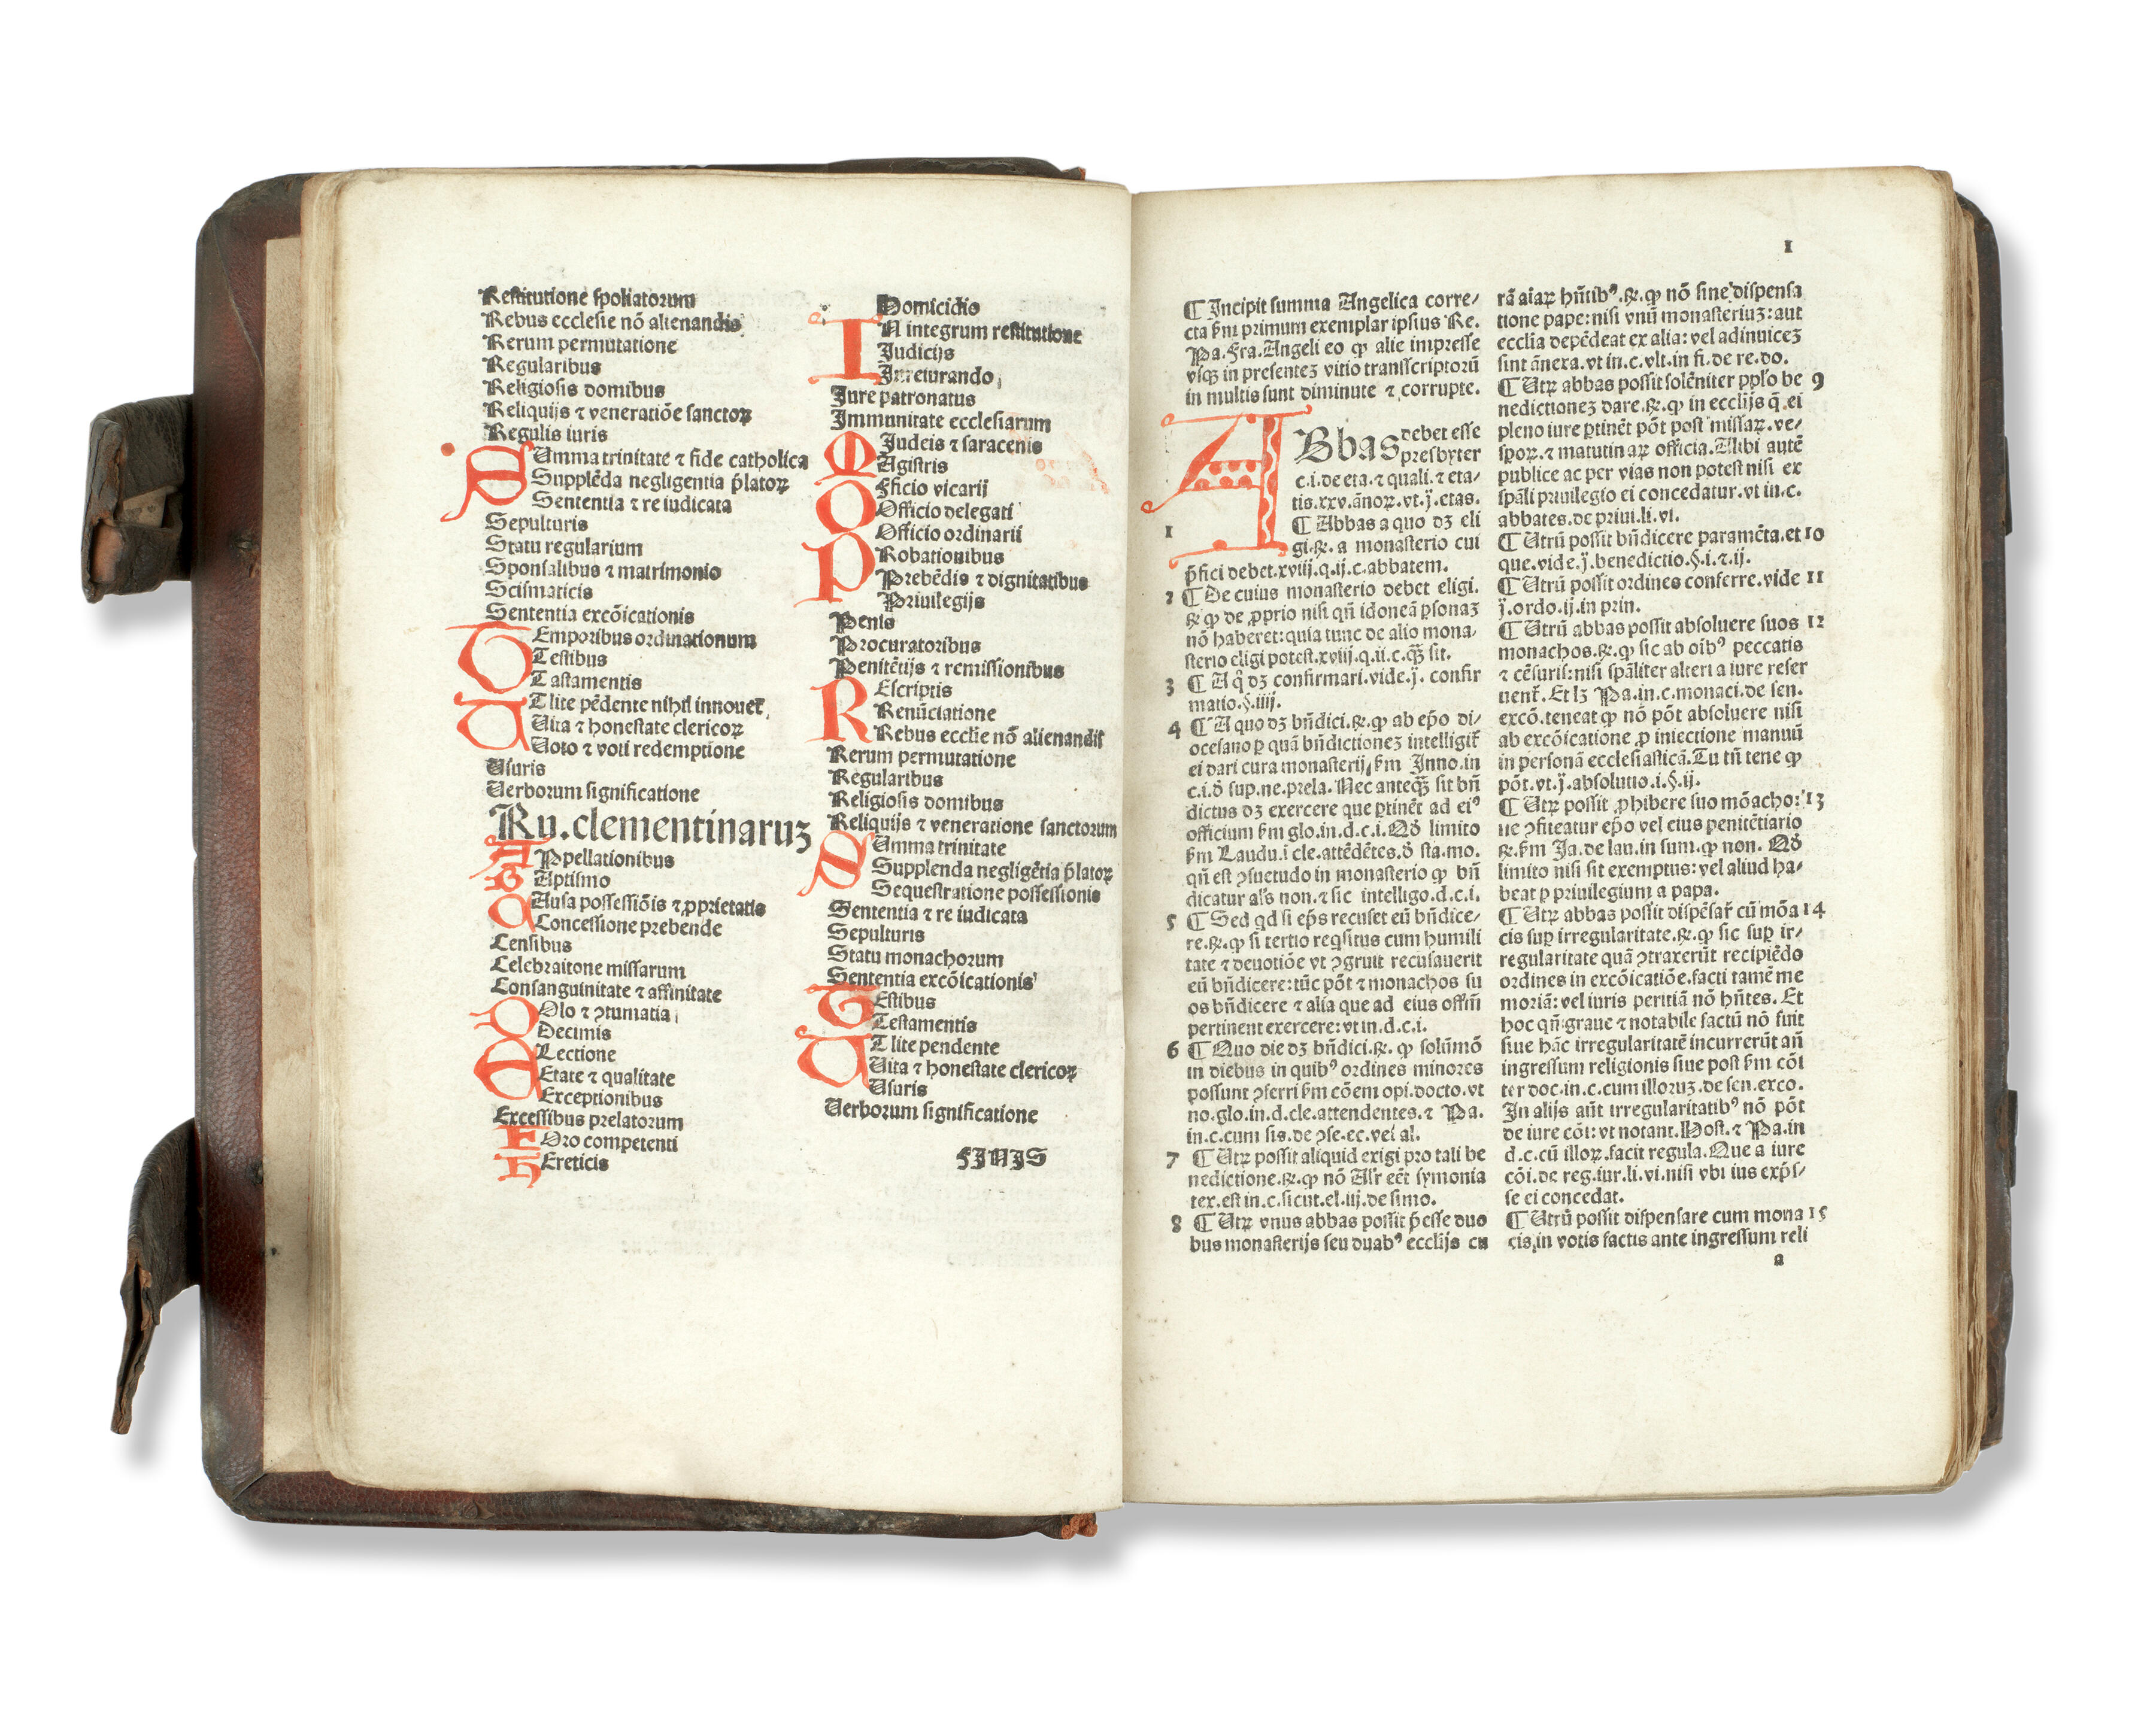 Restitutione spoliatorum
Rebus ecclesie nō alienandis
Rerum permutatione
Regularibus
Religiosis domibus
Reliquijs ⁊ veneratiōe sanctoꝝ
Regulis iuris
SUmma trinitate ⁊ fide catholica
Supplēda negligentia p̄latoꝝ
Sententia ⁊ re iudicata
Sepulturis
Statu regularium
Sponsalibus ⁊ matrimonio
Scismaticis
Sententia excōicationis
TEmporibus ordinationum
Testibus
Tastamentis
UT lite pēdente nihil innouet̄
Uita ⁊ honestate clericoꝝ
Uoto ⁊ voti redemptione
Usuris
Uerborum significatione
Ru.clementinaruꝫ
APpellationibus
BAptismo
CAusa possessiōis ⁊ ꝓprietatis
Concessione prebende
Censibus
Celebraitone missarum
Consanguinitate ⁊ affinitate
DOlo ⁊ ꝯtumatia
Decimis
ELectione
Etate ⁊ qualitate
Exceptionibus
Excessibus prelatorum
FOro competenti
hEreticis
Homicidio
IN integrum restitutione
Judicijs
Jureiurando
Jure patronatus
Immunitate ecclesiarum
Judeis ⁊ saracenis
MAgistris
OFficio vicarij
Officio delegati
Officio ordinarii
PRobationibus
Prebēdis ⁊ dignitatibus
Priuilegijs
Penis
Procuratoribus
Penitētijs ⁊ remissionibus
REscriptis
Renūciatione
Rebus ecclie nō alienandis
Rerum permutatione
Regularibus
Religiosis domibus
Reliquijs ⁊ veneratione sanctorum
SUmma trinitate
Supplenda negligētia p̄latoꝝ
Sequestratione possessionis
Sententia ⁊ re iudicata
Sepulturis
Statu monachorum
Sententia excōicationis
TEstibus
Testamentis
UT lite pendente
Uita ⁊ honestate clericoꝝ
Usuris
Uerborum significatione
FINIS
1
¶ Incipit summa Angelica corre/
cta ẜm primum exemplar ipsius Re.
Pa.Fra.Angeli eo ꝙ alie impresse
vsqꝫ in presenteꝫ vitio transscriptorū
in multis sunt diminute ⁊ corrupte.
ABbas debet esse
presbyter
c.i.de eta.⁊ quali.⁊ eta/
tis.xxv.ānoꝝ.vt.j̈.etas.
1 ¶ Abbas a quo dꝫ eli
gi.ꝶ. a monasterio cui
p̄fici debet.xviij.q.ij.c.abbatem.
2 ¶ De cuius monasterio debet eligi.
ꝶ ꝙ de ꝓprio nisi qn̄ idoneā ꝑsonaꝫ
nō haberet:quia tunc de alio mona/
sterio eligi potest.xviij.q.ii.c.qꝫ̄ sit.
3 ¶ A q̊ dꝫ confirmari.vide.j̈. confir
matio.§.iiij.
4 ¶ A quo dꝫ bn̄dici.ꝶ.ꝙ ab ep̄o di/
ocesano ꝑ quā bn̄dictioneꝫ intelligit̄
ei dari cura monasterij, ẜm Inno.in
c.i.d̄ sup.ne.prela. Nec anteqꝫ̄ sit bn̄
dictus dꝫ exercere que ꝑtinēt ad eiꝰ
officium ẜm glo.in.d.c.i.Qd̄ limito
ẜm Laudu.i cle.attēdētes.d̄ sta.mo.
qn̄ est ꝯsuetudo in monasterio ꝙ bn̄
dicatur al̄s non.⁊ sic intelligo.d.c.i.
5 ¶ Sed qd si ep̄s recuset eū bn̄dice/
re.ꝶ.ꝙ si tertio reqsitus cum humili
tate ⁊ deuotiōe vt ꝯgruit recusauerit
eū bn̄dicere:tūc pōt ⁊ monachos su
os bn̄dicere ⁊ alia que ad eius offm̄
pertinent exercere:vt in.d.c.i.
6 ¶ Quo die dꝫ bn̄dici.ꝶ. ꝙ solūmō
in diebus in quibꝰ ordines minores
possunt ꝯferri ẜm cōem opi.docto.vt
no.glo.in.d.cle.attendentes.⁊ Pa.
in.c.cum sis.de ꝯse.ec.vel al.
7 ¶ Utꝝ possit aliquid exigi pro tali be
nedictione.ꝶ.ꝙ nō Al̄r eēt symonia
tex.est in.c.sicut.el.iij.de simo.
8 ¶ Utꝝ vnus abbas possit p̄esse duo
bus monasterijs seu duabꝰ ecclijs cu
rā aīaꝝ hn̄tibꝰ.ꝶ.ꝙ nō sine dispensa
tione pape:nisi vnū monasteriuꝫ:aut
ecclia depēdeat ex alia: vel adinuiceꝫ
sint ānexa.vt in.c.vlt.in fi.de re.do.
¶ Utꝝ abbas possit solēniter ppl̄o be 9
nedictioneꝫ dare.ꝶ.ꝙ in ecclijs q̄.ei
pleno iure ꝑtinēt pōt post missaꝝ.ve/
spoꝝ.⁊ matutinaꝝ officia. Alibi autē
publice ac per vias non potest nisi ex
spāli priuilegio ei concedatur.vt in.c.
abbates.de priui.li.vi.
¶ Utrū possit bn̄dicere paramēta.et 10
que.vide.j̈.benedictio.§.i.⁊.ij.
¶ Utrū possit ordines conferre.vide 11
j̈.ordo.ij.in prin.
¶ Utrū abbas possit absoluere suos 12
monachos.ꝶ.ꝙ sic ab oībꝰ peccatis
⁊ cēsuris:nisi spāliter alteri a iure reser
uent̄. Et lꝫ Pa.in.c.monaci.de sen.
excō.teneat ꝙ nō pōt absoluere nisi
ab excōicatione ꝓ iniectione manuū
in personā ecclesiasticā.Tu tn̄ tene ꝙ
pōt.vt.j̈.absolutio.i.§.ij.
¶ Utꝝ possit ꝓhibere suo mōacho: 13
ne ꝯfiteatur ep̄o vel eius penitētiario
ꝶ.ẜm Ja.de lau.in sum.ꝙ non. Qd̄
limito nisi sit exemptus: vel aliud ha/
beat ꝑ priuilegium a papa.
¶ Utꝝ abbas possit dispēsar̄ cū mōa 14
cis suꝑ irregularitate.ꝶ.ꝙ sic suꝑ ir/
regularitate quā ꝯtraxerūt recipiēdo
ordines in excōicatiōe.facti tamē me
moriā: vel iuris peritiā nō hn̄tes. Et
hoc qn̄ graue ⁊ notabile factū nō fuit
siue hāc irregularitatē incurrerūt an̄
ingressum religionis siue post ẜm cōi
ter doc.in.c.cum illoruꝫ.de sen.exco.
In alijs aūt irregularitatibꝰ nō pōt
de iure cōi: vt notant.Host.⁊ Pa.in
d.c.cū illoꝝ.facit regula.Que a iure
cōi.de reg.iur.li.vi.nisi vbi ius exp̄s/
se ei concedat.
¶ Utrū possit dispensare cum mona 15
cis,in votis factis ante ingressum reli
a